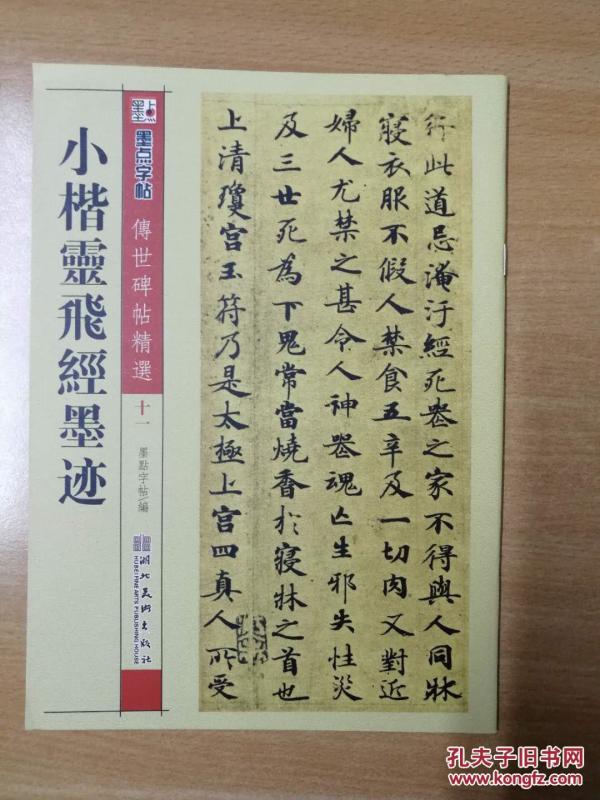 小楷靈飛經墨迹
墨点
墨点字帖
傳世碑帖精選
十一
墨點字帖/編
湖北美术出版社
HUBEI FINE ARTS PUBLISHING HOUSE
行此道忌淹汙經死喪之家不得與人同牀
寢衣服不假人禁食五辛及一切肉又對近
婦人尤禁之甚令人神喪魂亡生邪失性災
及三世死為下鬼常當燒香於寢牀之首也
上清瓊宮玉符乃是太極上宮四真人所受
孔夫子旧书网
www.kongfz.com